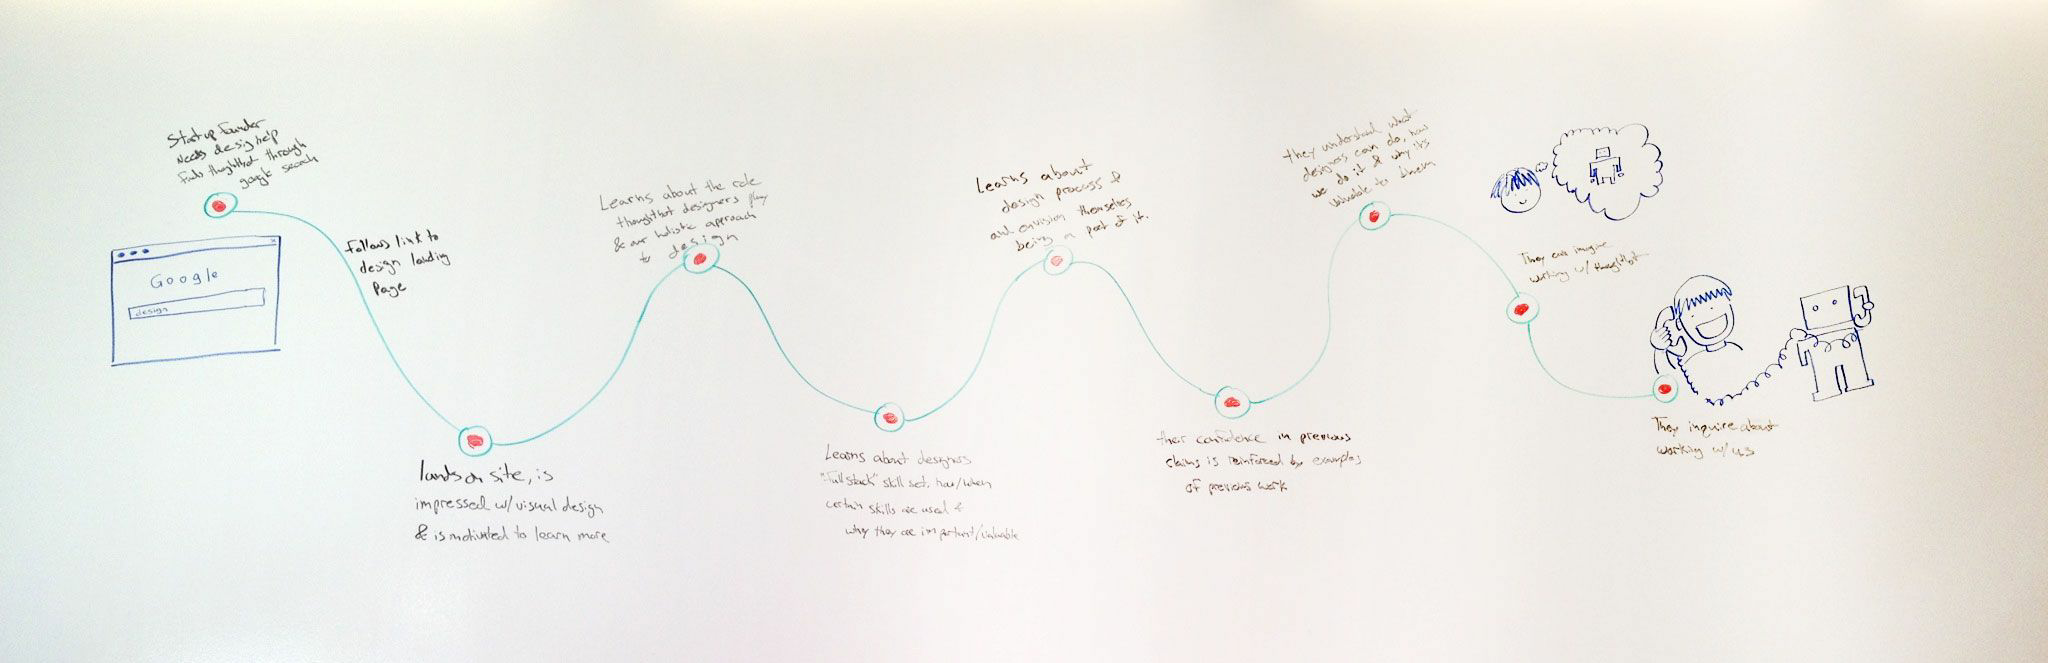 Startup founder
needs design help
finds thoughtbot through
google search
Google
design
follows link to
design landing
page
lands on site, is
impressed w/ visual design
& is motivated to learn more
Learns about the role
thoughtbot designers play
& our holistic approach
to design
Learns about designers
"full stack" skill set, how/when
certain skills are used &
why they are important/valuable
Learns about
design process &
and envision themselves
being a part of it.
their confidence in previous
claims is reinforced by examples
of previous work
they understand what
designers can do, how
we do it & why its
valuable to them
They can imagine
working w/ thoughtbot
They inquire about
working w/ us